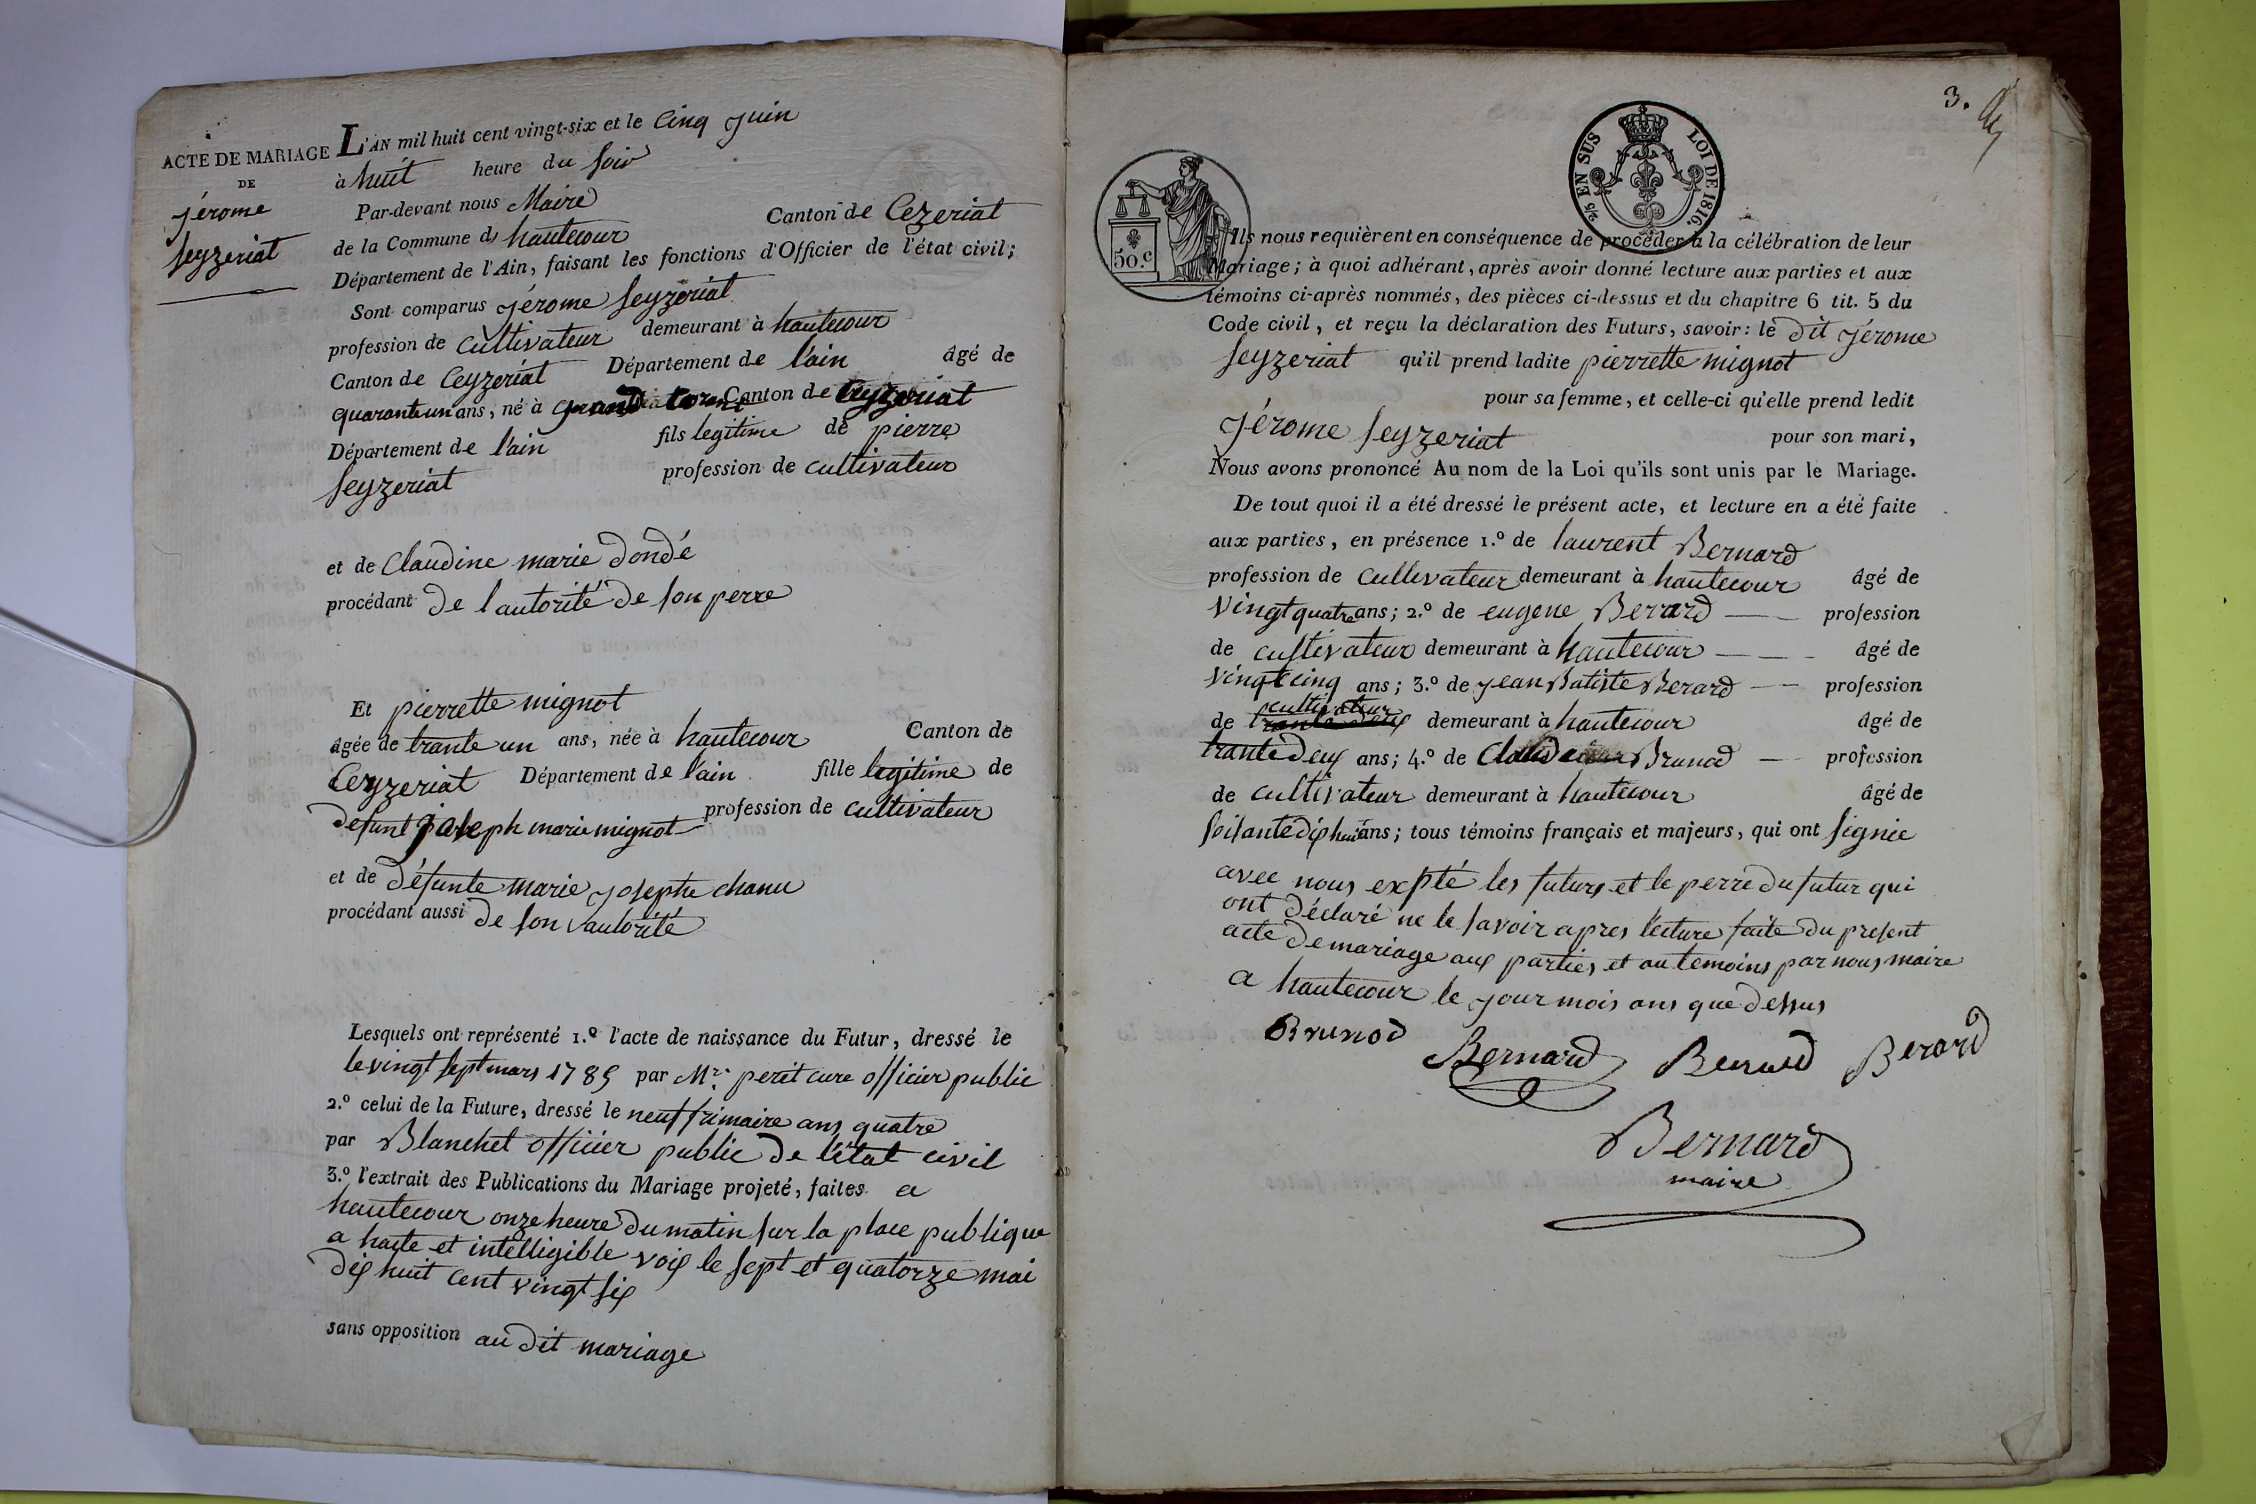 ACTE DE MARIAGE
DE
Jérome
Seyzeriat
L'AN mil huit cent vingt-six et le cinq juin
à huit heure du soir
Par-devant nous Maire
de la Commune de hautecour Canton de Cezeriat
Département de l'Ain, faisant les fonctions d'Officier de l'état civil;
Sont comparus Jérome Seyzériat
profession de cultivateur demeurant à hautecour
Canton de Ceyzeriat Département de l'ain âgé de
quarante un ans, né à Canton de Ceyzeriat
Département de l'ain fils legitime de pierre
Seyzeriat profession de cultivateur
et de Claudine marie dondé
procédant de l'autorité de son perre
Et pierrette mignot
âgée de trante un ans, née à hautecour Canton de
Ceyzeriat Département de l'ain fille legitime de
defunt joseph marie mignot profession de cultivateur
et de défunte marie josephe chanu
procédant aussi de son autorité
Lesquels ont représenté 1.º l'acte de naissance du Futur, dressé le
le vingt sept mars 1785 par Mr. perit cure officier public
2.º celui de la Future, dressé le neuf frimaire ans quatre
par Blanchet officier public de l'état civil
3.º l'extrait des Publications du Mariage projeté, faites a
hautecour onze heure du matin sur la place publique
a haute et intelligible voix le sept et quatorze mai
dix huit cent vingt six
sans opposition au dit mariage
3.
25 EN SUS LOI DE 1816.
50.c
Ils nous requièrent en conséquence de procéder à la célébration de leur
Mariage; à quoi adhérant, après avoir donné lecture aux parties et aux
témoins ci-après nommés, des pièces ci-dessus et du chapitre 6 tit. 5 du
Code civil, et reçu la déclaration des Futurs, savoir: le dit Jérome
Seyzeriat qu'il prend ladite pierrette mignot
pour sa femme, et celle-ci qu'elle prend ledit
Jérome Seyzeriat pour son mari,
Nous avons prononcé Au nom de la Loi qu'ils sont unis par le Mariage.
De tout quoi il a été dressé le présent acte, et lecture en a été faite
aux parties, en présence 1.º de laurent Bernard
profession de cultivateur demeurant à hautecour âgé de
vingt quatre ans; 2.º de eugene Berard profession
de cultivateur demeurant à hautecour âgé de
vingt cinq ans; 3.º de jean Batiste Berard profession
cultivateur
de trante deux demeurant à hautecour âgé de
trante deux ans; 4.º de Brunod profession
de cultivateur demeurant à hautecour âgé de
soisante dix huit ans; tous témoins français et majeurs, qui ont signie
avec nous expté les futurs et le perre du futur qui
ont déclaré ne le savoir apres lecture faite du present
acte de mariage aux parties et au temoins par nous maire
a hautecour le jour mois ans que dessus
Brunod
Bernard Berard Berard
Bernard
maire